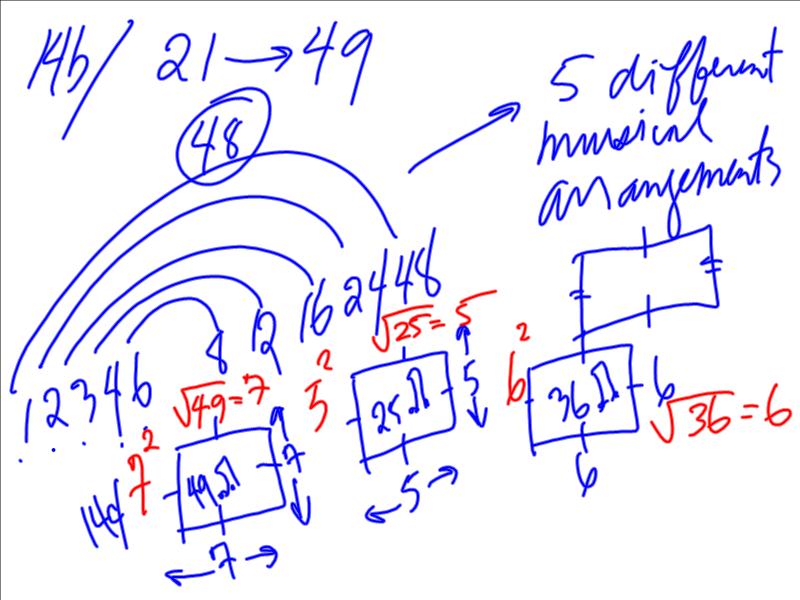 14b/ 21 → 49
48
5 different
musical
arrangements
1 2 3 4 6 8 12 16 24 48
√49 = 7
√25 = 5
√36 = 6
14d 7² 49 7
7
5² 25 5
5
6² 36 6
6